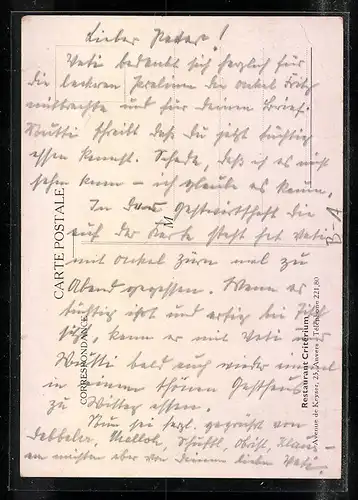 Lieber Peter!
Vati bedankt sich herzlich für
die leckeren Pralinen die onkel Fritz
mitbrachte und für deinen Brief.
Mutti schreibt daß du jetzt tüchtig
essen kannst. Schade, daß ich es nicht
sehen kann – ich glaube es kaum.
In der Gastwirtschaft die
auf der Karte steht hat Vati
mit onkel Zürn mal zu
Abend gegessen. Wenn er
tüchtig ißt und artig bei Tisch
sitzt, kann er mit Vati und
Mutti bald auch wieder einmal
in einem schönen Gasthaus
zu Mittag essen.
Nun sei herzl. gegrüßt von
von deinem lieben Vati
B. A
M
CARTE POSTALE
CORRESPONDANCE
Restaurant Critérium
Avenue de Keyser, 25, Anvers - Téléphone 221,80